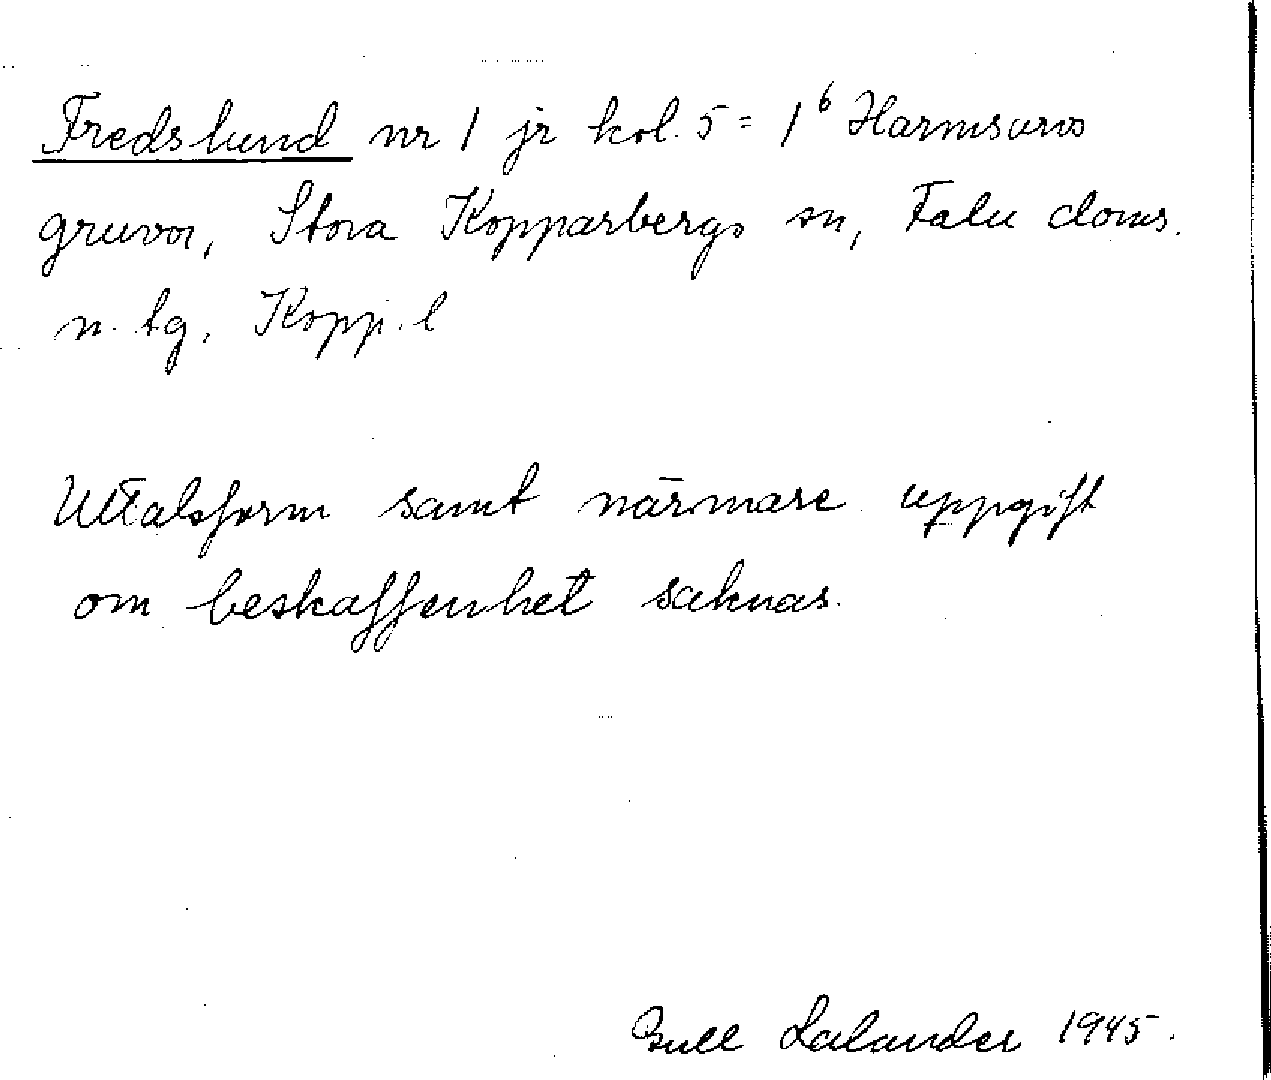 Fredslund nr 1 jr kol. 5 = 1⁶ Harmsarvs
gruvor, Stora Kopparbergs sn, Falu doms.
n. tg. Kopp. l
Uttalsform samt närmare uppgift
om beskaffenhet saknas.
Lalander 1945.